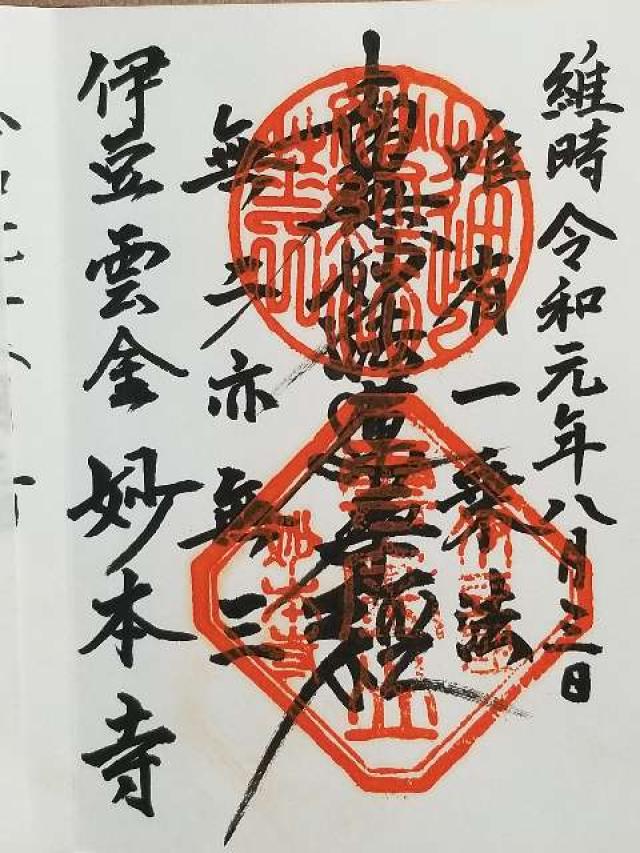 維時令和元年八月三日
唯有一乗法
南無妙法蓮華経
無二亦無三
妙本寺
伊豆雲金 妙本寺